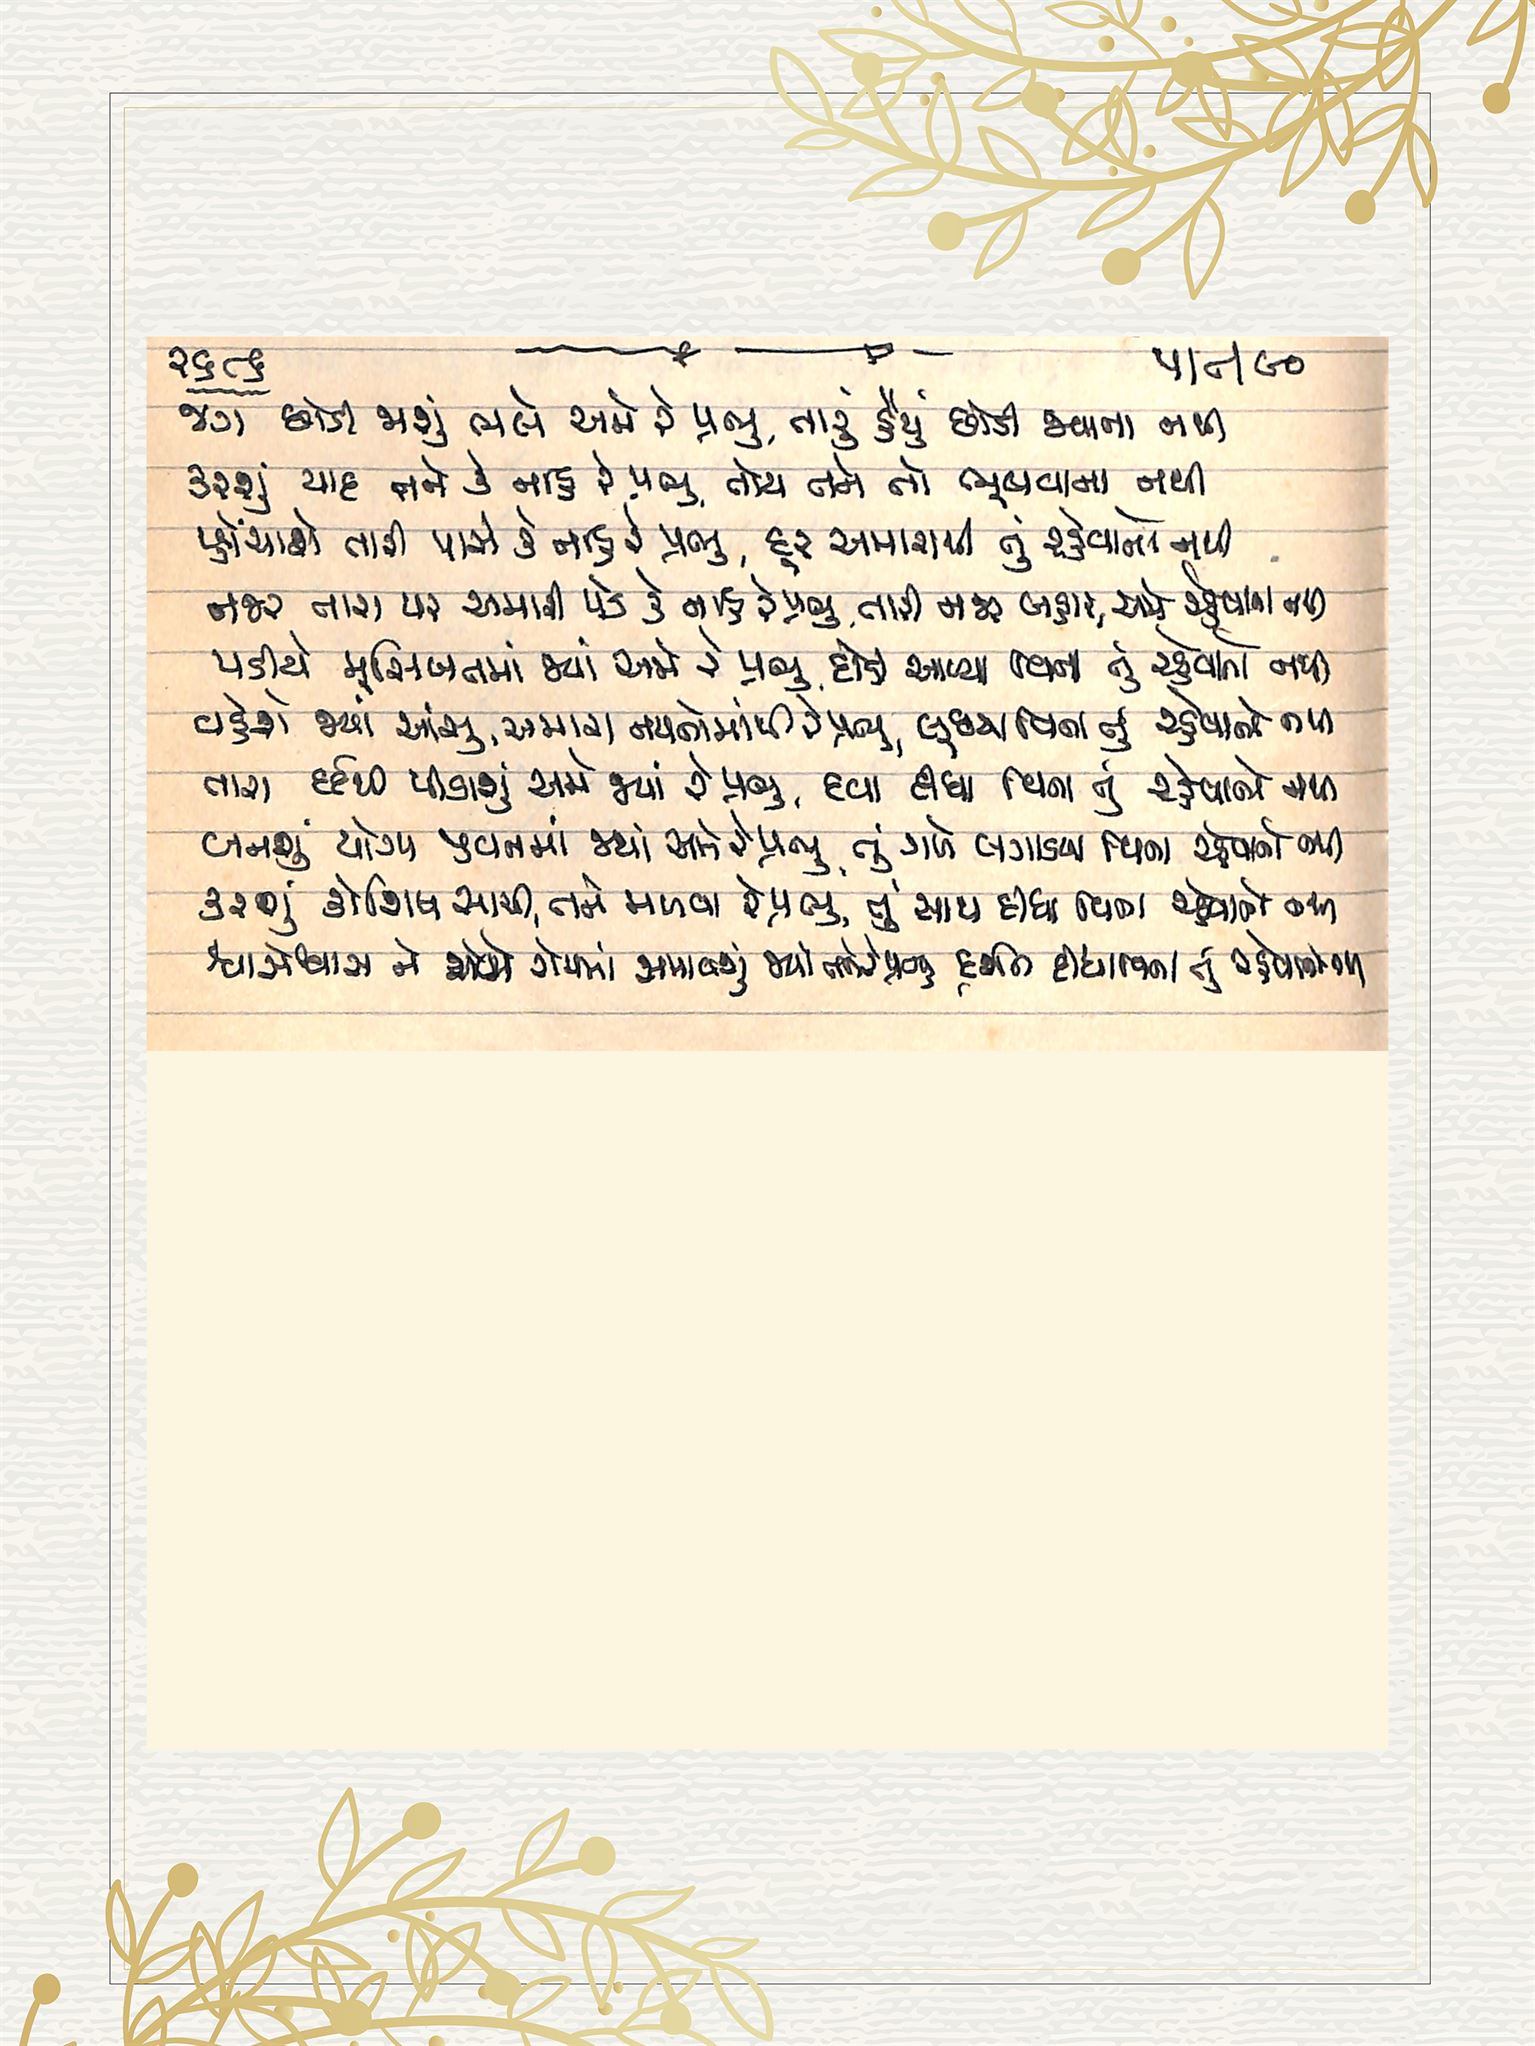 ૨૬૯૬ ૫/૯/૯૦
જગ છોડી જાશું ભલે અમે રે પ્રભુ, તારું હૈયું છોડી જવાના નથી
કરશું યાદ તને કે નહિ રે પ્રભુ, તોય તમે તો ભૂલવાના નથી
પ્હોંચાશે તારી પાસે કે નહિ રે પ્રભુ, દૂર અમારાથી તું રહેવાનો નથી
નજર તારા પર અમારી પડે કે નહિ રે પ્રભુ, તારી નજર બહાર, અમે રહેવાના નથી
પડીયે મુસિબતમાં જ્યાં અમે રે પ્રભુ, દોડી આવ્યા વિના તું રહેવાનો નથી
વહેશે જ્યાં આંસુ, અમારા નયનોમાંથી રે પ્રભુ, લૂછયા વિના તું રહેવાનો નથી
તારા દર્દથી પીડાશું અમે જ્યાં રે પ્રભુ, દવા દીધા વિના તું રહેવાનો નથી
બનશું યોગ્ય જીવનમાં જ્યાં અમે રે પ્રભુ, તું ગળે લગાડયા વિના રહેવાનો નથી
કરશું કોશિષ સાચી, તને મળવા રે પ્રભુ, તું સાથ દીધા વિના રહેવાનો નથી
શ્વાસેશ્વાસ ને રોમે રોમમાં સમાવશું જ્યાં તને રે પ્રભુ દર્શન દીધા વિના તું રહેવાનો નથી